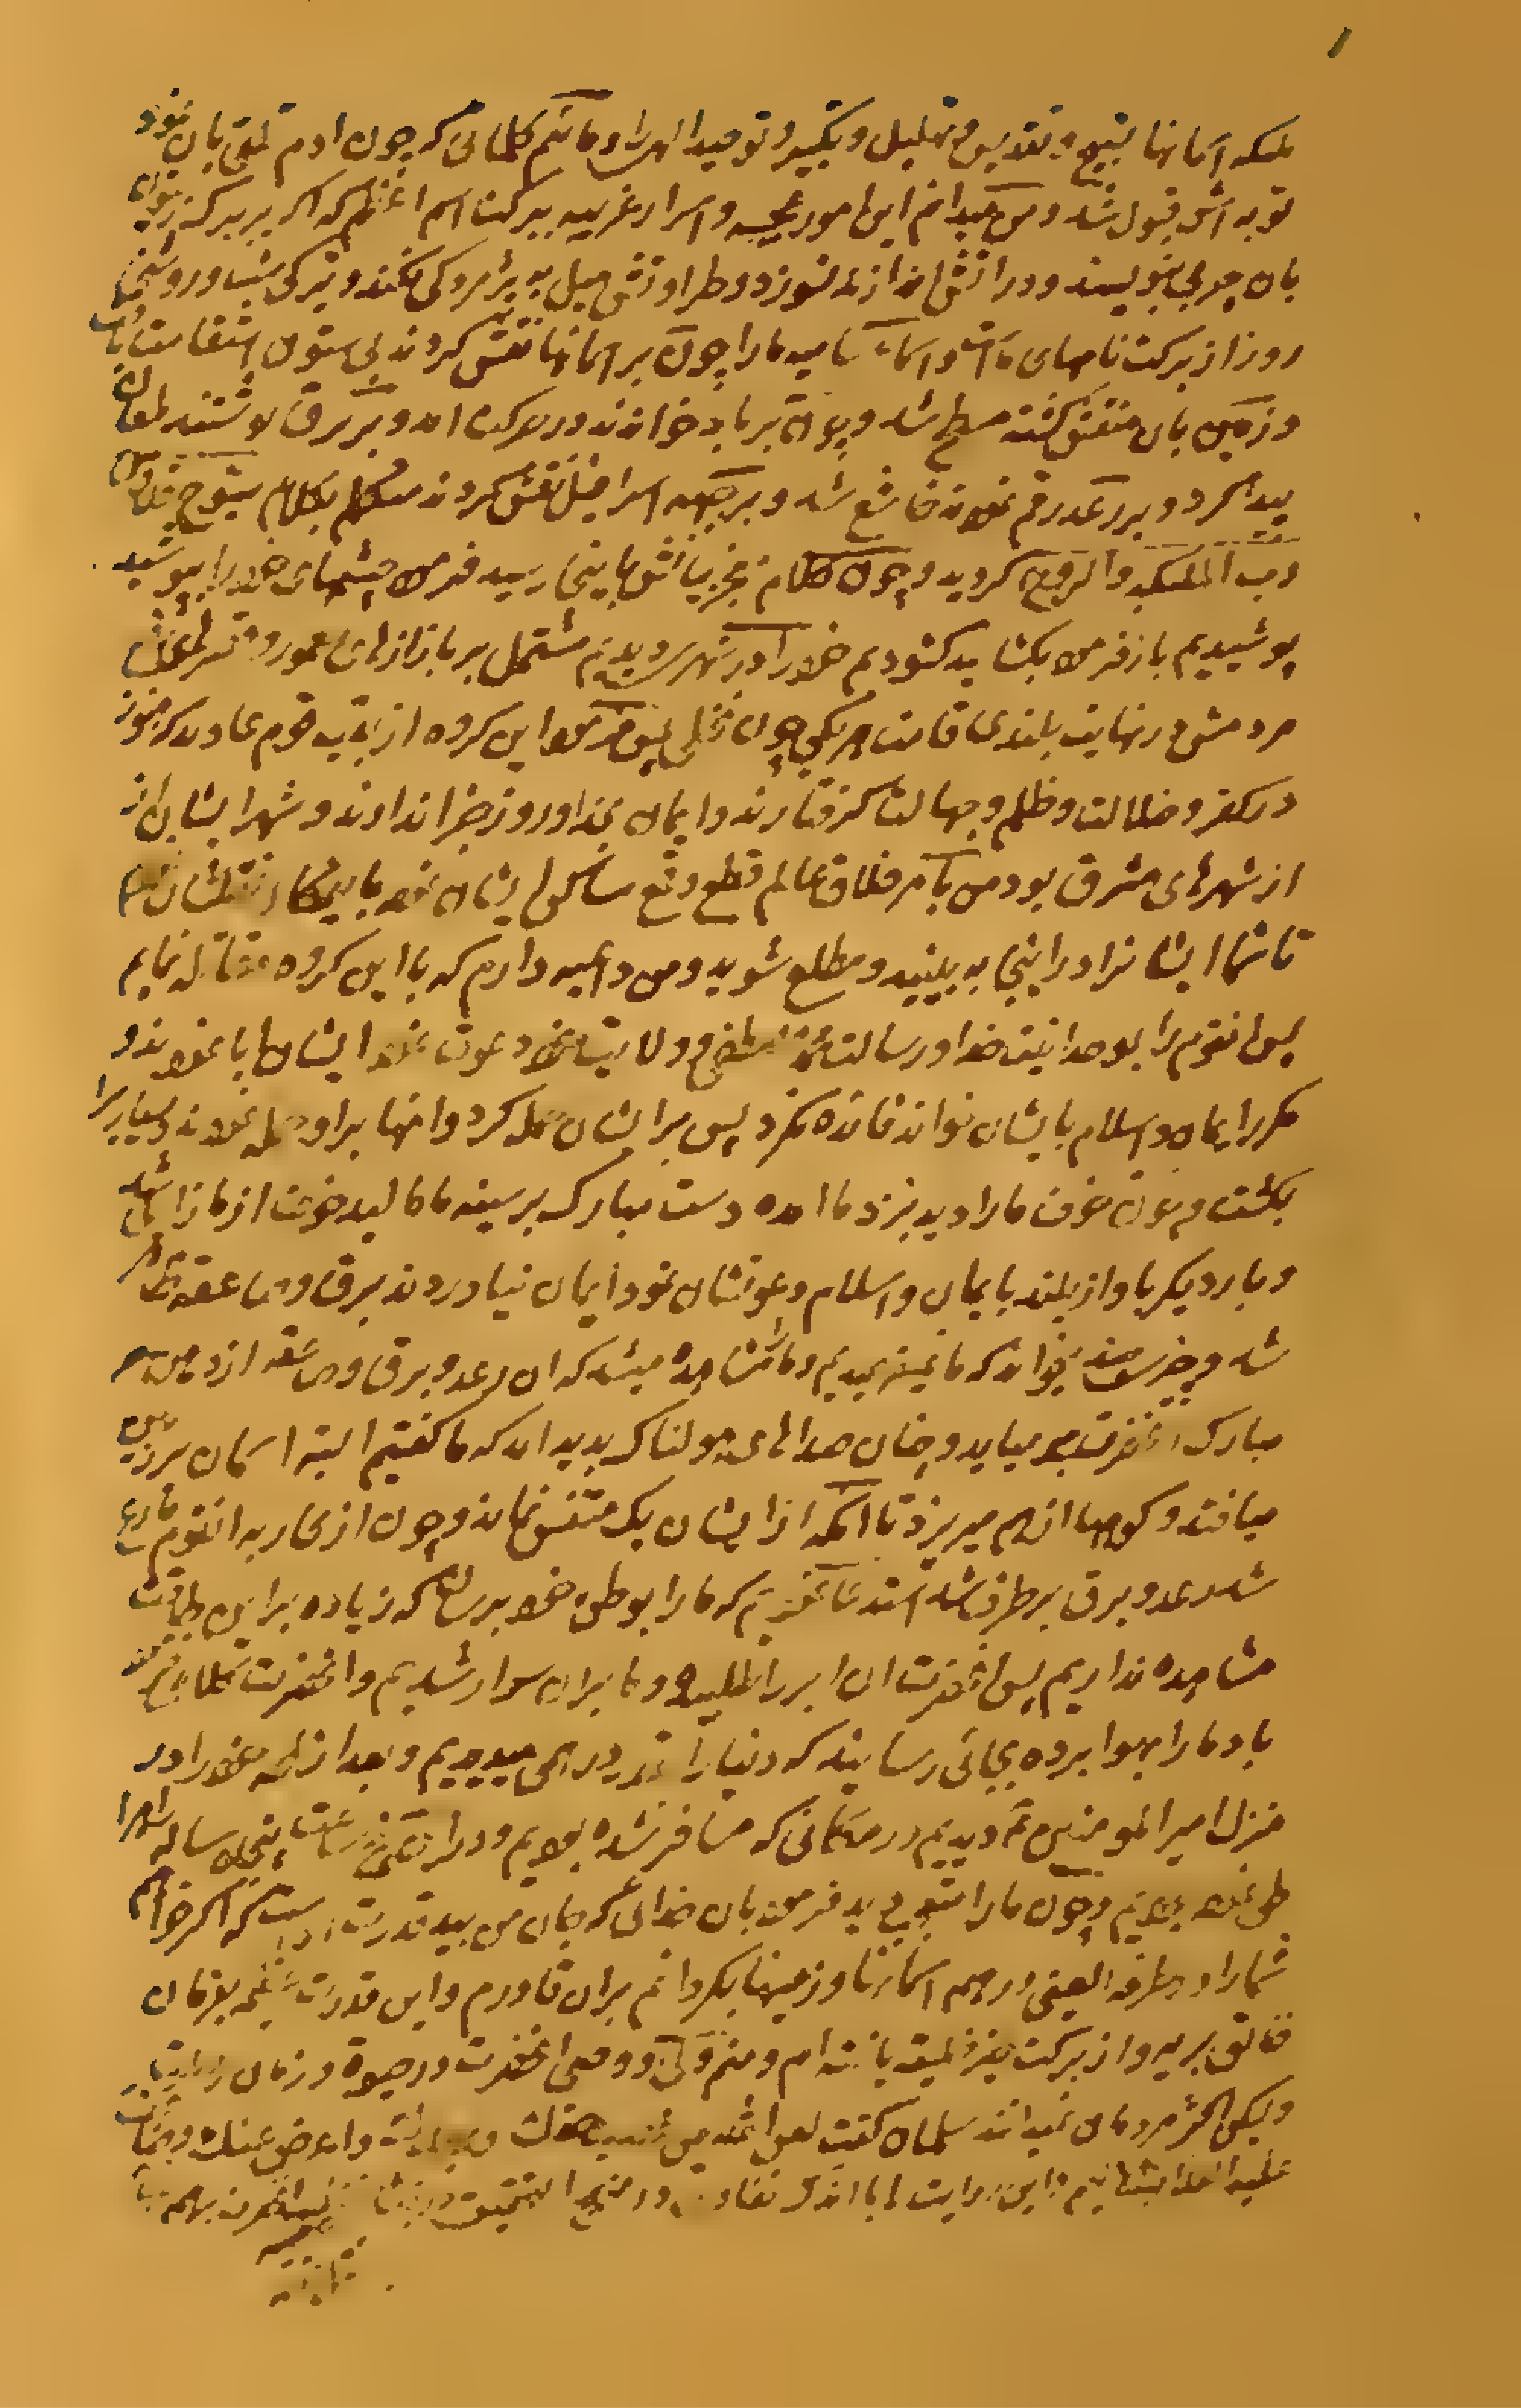 ملکه آسمانها تسبیح و تقدیس و تهلیل و تکبیر و توحید الهی را و مائیم کلماتی که چون ادم تلقی بان نمود
توبه اش قبول شد و من میدانم این امور عجیبه و اسرار غریبه ببرکت اسم اعظم که اگر بر برک زیتون
بان چوبی بنویسند و در اتش اندازند نسوزد و طراوتش میل به پژمردکی نکند و تیرکی شب و روشنی
روز از برکت نامهای ماست و اسماء سامیه ما را چون بر اسمانها نقش کردند بی ستون استقامت یافت
و زمین بان منقش کشته مسطح شد و چون بر باد خواندند در حرکت امد و بر برق نوشتند لمعان
پیدا کرد و بر رعد رقم نمودند خاشع شد و بر جبهه اسرافیل نقش کردند متکلم بکلام سبوح قدوس
رب الملئکه والروح کردید و چون کلام معجز بیانش باینجا رسید فرمود چشمهای خود را بپوشید
پوشیدیم باز فرمود بکشائید کشودیم خود را در شهری دیدیم مشتمل بر بازارهای معمور و قصرهای
مردمش در نهایت بلندی قامت هر یکی چون نخلی پس فرمود این کروه از بقیه قوم عادند که هنوز
در کفر و ضلالت و ظلم و جهالت کرفتارند و ایمان بخدا و روز جزا ندارند و شهر ایشان
از شهرهای مشرق بود من بامر خلاق عالم قطع و قمع مساکن ایشان نموده باین مکان نقلشان
تا شما ایشانرا در اینجا به بینید و مطلع شوید و من داعیه دارم که با این کروه مقاتله نمایم
پس انقوم را بوحدانیت خدا و رسالت محمد مصطفی و ولایت خود دعوت نمود ایشان ابا نمودند و
مکرر ایمان و اسلام بایشان خواند فائده نکرد پس بر ایشان حمله کرد و انها بر او حمله نمودند و بسیاریرا
بکشت و چون خوف ما را دید بنزد ما امده دست مبارک بر سینه ما مالید خوف از ما زایل شد
و بار دیکر باواز بلند بایمان و اسلام دعوتشان نمود ایمان نیاوردند برق و صاعقه ظاهر
شد و چیزی بخواند که ما نمیفهمیدیم و ما را مشاهده میشد که ان رعد و برق و صاعقه از دهن
مبارک انحضرت بر میاید و چنان صداهای هولناک پدید امد که ما کفتیم البته اسمان بر زمین
میافتد و کوهها از هم میریزد تا انکه از ایشان یک متنفس نماند و چون از محاربه انقوم فارغ
شد رعد و برق برطرف شد استدعا نمودیم که ما را بوطن خود برسان که زیاده بر این طاقت
مشاهده نداریم پس انحضرت ان ابر را طلبیده و ما بر ان سوار شدیم و انحضرت تکلمی فرمود
باد ما را بهوا برده بجائی رسانید که دنیا را بقدر درهمی میدیدیم و بعد از لمحه خود را در
منزل امیر المومنین ع دیدیم در مکانی که مسافر شده بودیم و در اندک ساعت پنجاه ساله راه را
طی نموده بودیم و چون ما را متعجب دید فرمود بان خدائی که جان من بید قدرت اوست که اگر خواهم
شما را در طرفة العینی در همه اسمانها و زمینها بکردانم بر ان قادرم و این قدرت عظیمه بفرمان
خالق بریه و از برکت یافته ام و منم ولی و وصی انحضرت در حیوة و زمان
ولیکن اکثر مردمان نمیدانند سلمان کفت لعن الله من غصب حقک و واعرض عنک و ضاعف
علیه العذاب الالیم و این روایت را با اندک تفاوت در منهج التحقیق